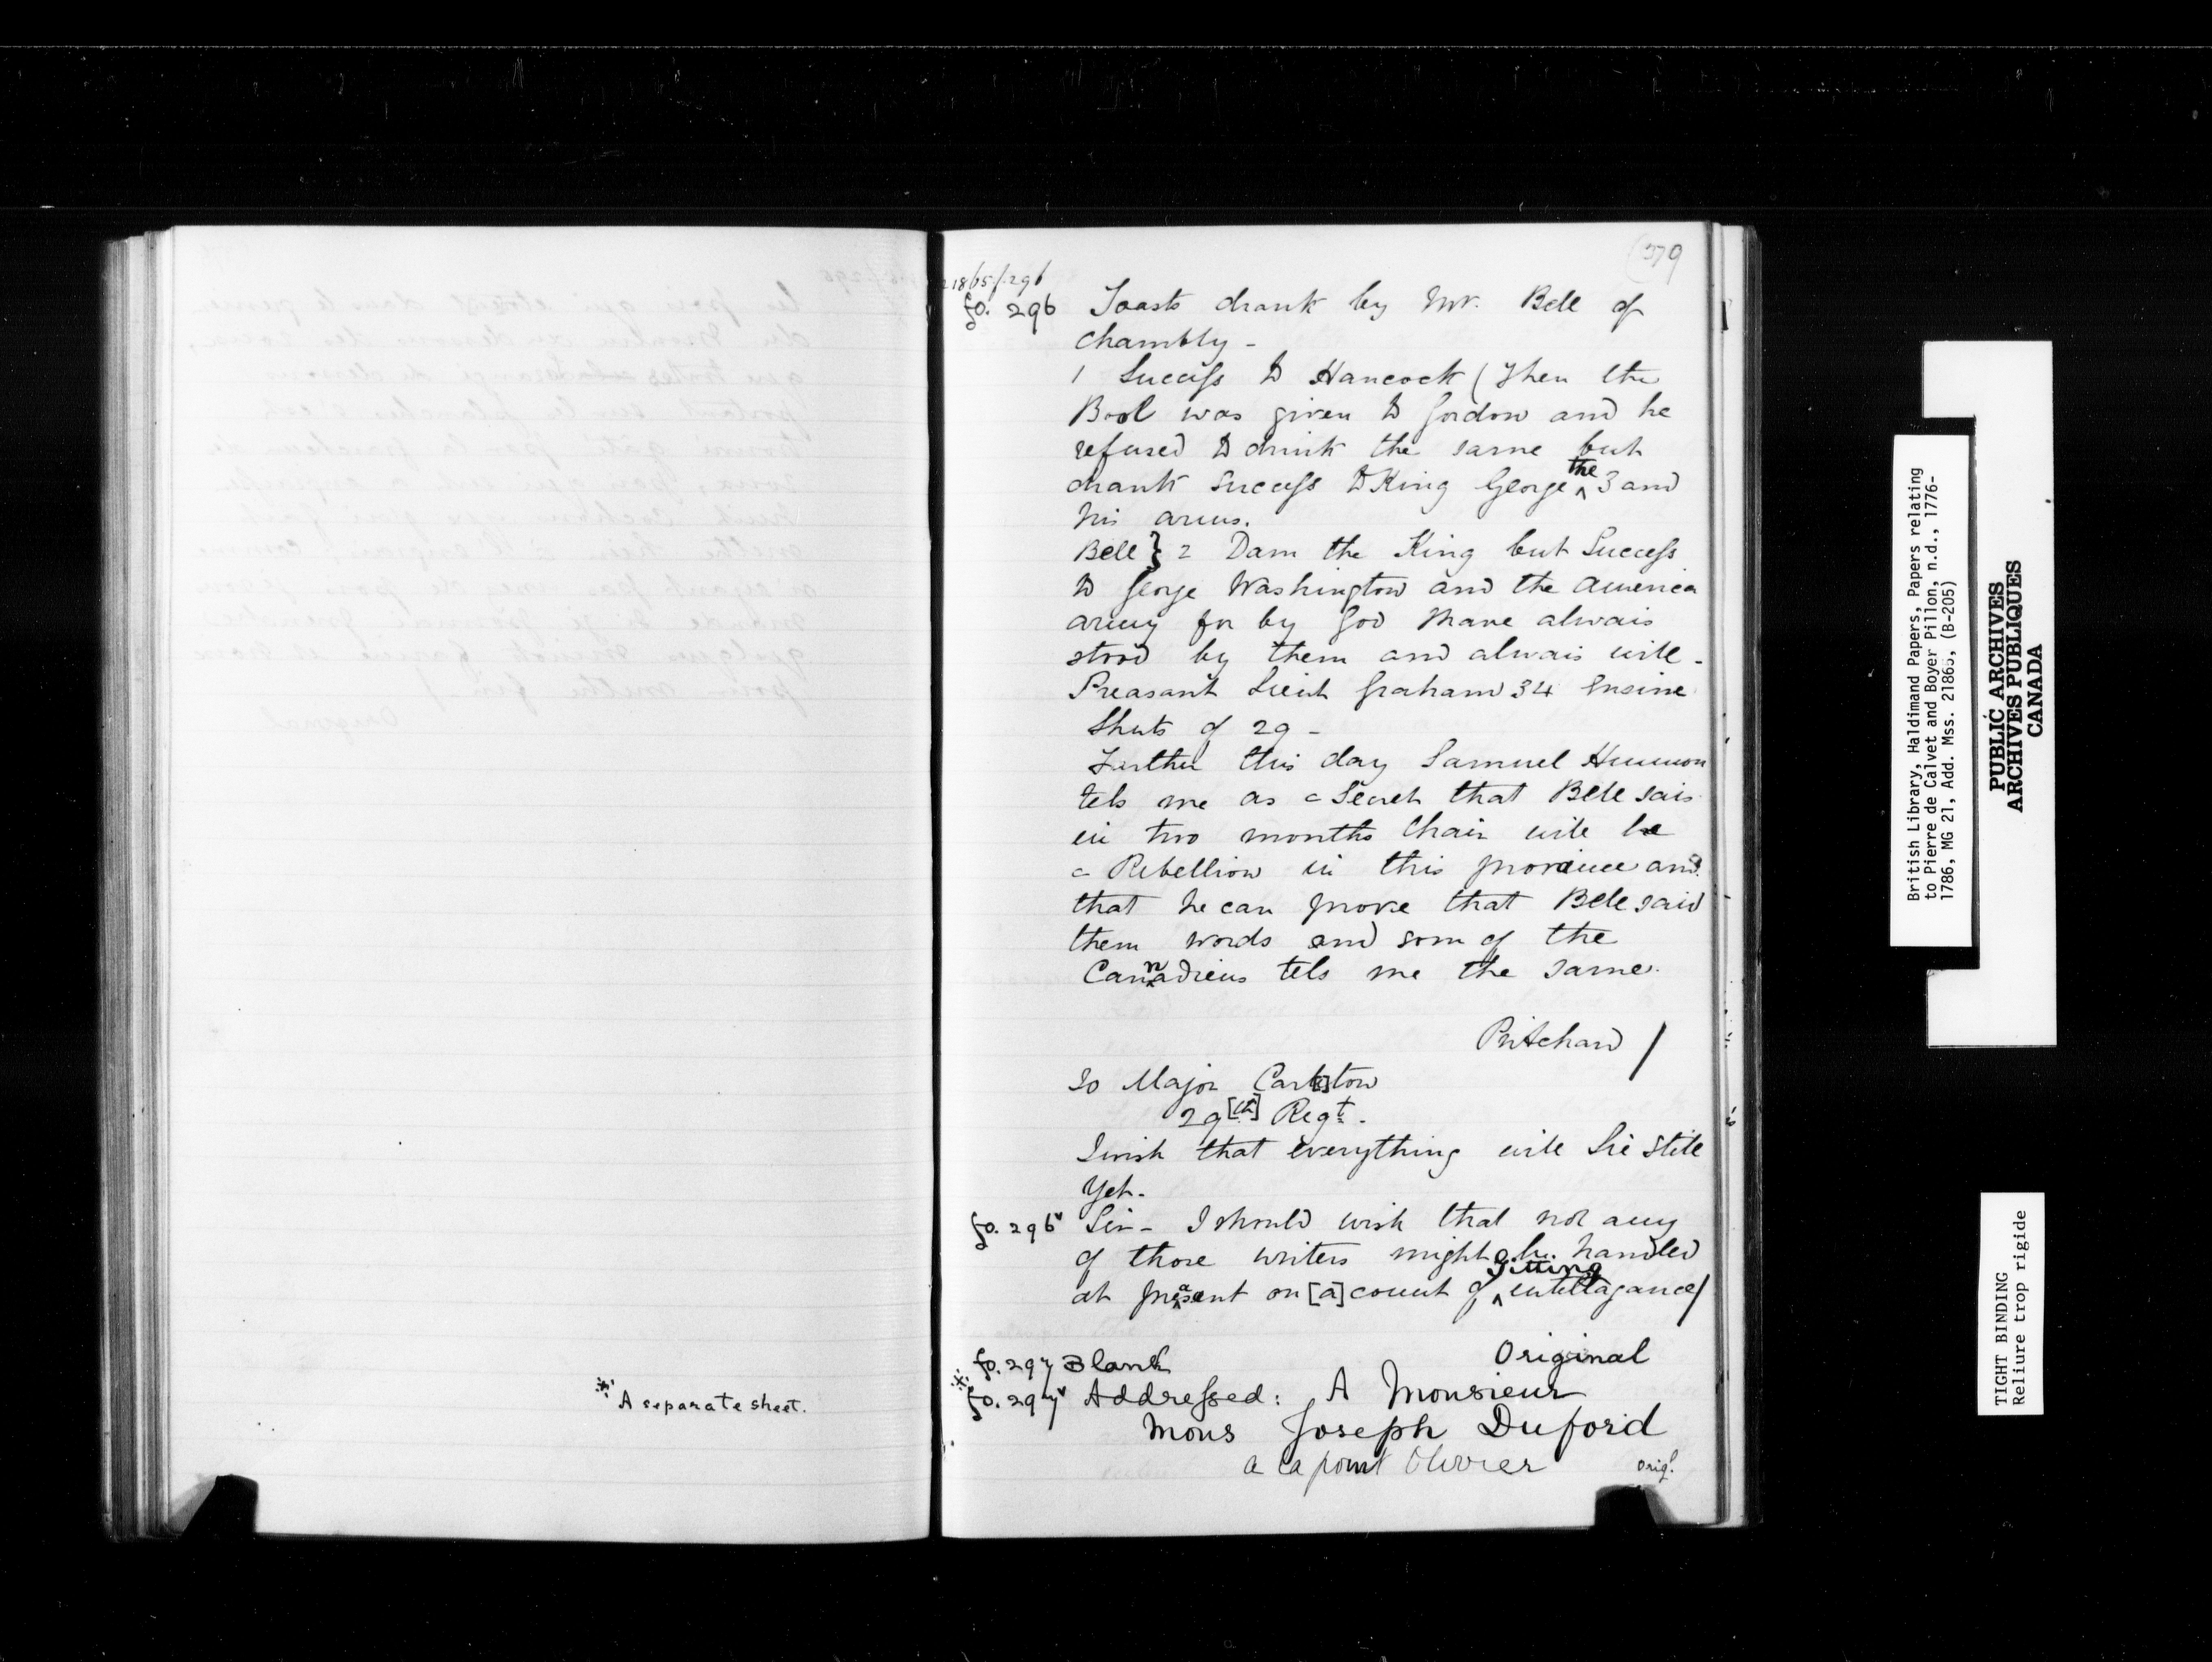 (379
21865/296
fo. 296 Toasts drank by Mr. Bell of
Chambly -
1 Success to Hancock (then the
Bool was given to Gordon and he
refused to drink the same but
drank success to King George the 3 and
his arms.
Bell } 2 Dam the King but Success
to George Washington and the America
army for by God I have alwais
stood by them and alwais will -
Preasant Lieut Graham 34 Ensine
Shuts of 29 -
Further this day Samuel
tels me as a Secret that Bell sais
in two months thair will be
a Rebellion in this province and
that he can prove that Bell said
them words and som of the
Cannadiens tels me the same.
Pritchard /
To Major Carl[e]ton
29[th] Regt.
I wish that everything will Lie still
Yet.
fo. 296v Sir - I should wish that not any
of those writers might be handled
at preasant on [a]count of gitting intellagance/
Original
fo. 297 Blank
※ fo. 297v Addressed: A Monsieur
Mons Joseph Duford
a la point Olivier
orig.l
※ A separate sheet.
British Library, Haldimand Papers, Papers relating
to Pierre de Calvet and Boyer Pillon, n.d., 1776-
1786, MG 21, Add. Mss. 21865, (B-205)
PUBLIC ARCHIVES
ARCHIVES PUBLIQUES
CANADA
TIGHT BINDING
Reliure trop rigide